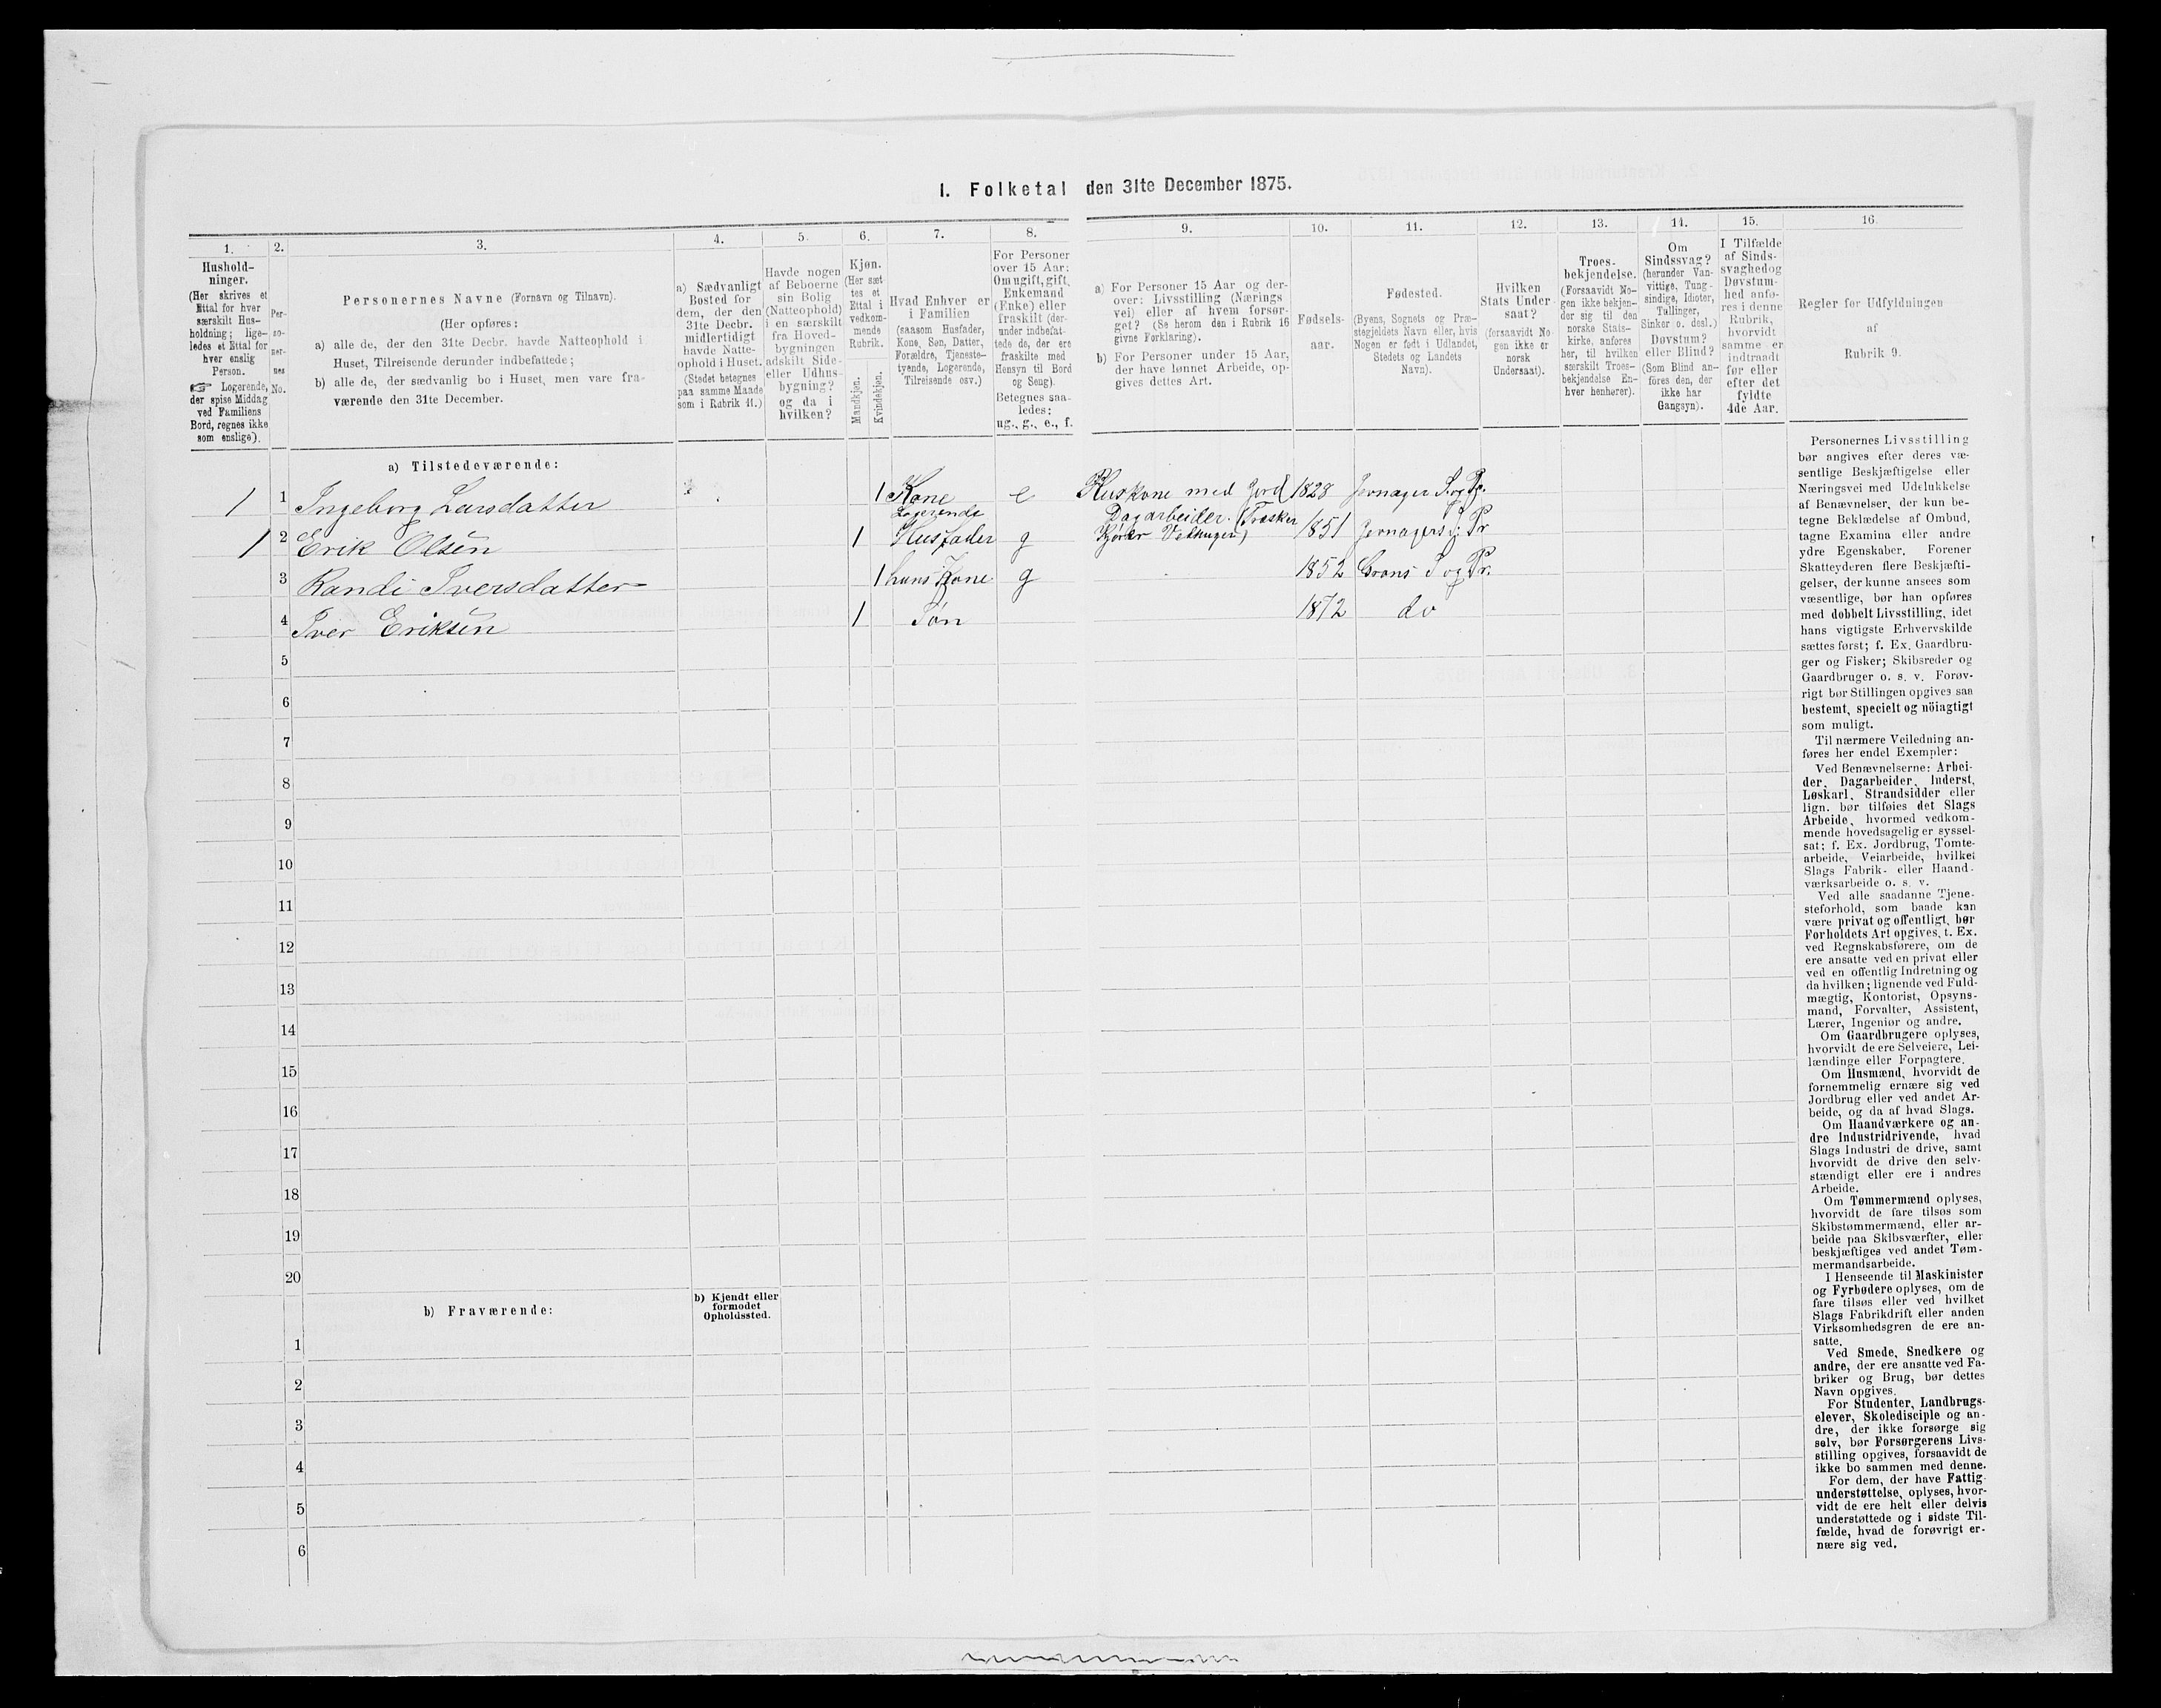 I. Folketal den 31te December 1875.
1.
Hushold-
ninger.
(Her skrives et
Ettal for hver
særskilt Hus-
holdning; lige-
ledes et Ettal for
hver enslig
Person.
☞ Logerende,
der spise Middag
ved Familiens
Bord, regnes ikke
som enslige).
2.
Per-
so-
ner-
nes
No.
3.
Personernes Navne (Fornavn og Tilnavn).
(Her opføres:
a) alle de, der den 31te Decbr. havde Natteophold i
Huset, Tilreisende derunder indbefattede;
b) alle de, der sædvanlig bo i Huset, men vare fra-
værende den 31te December.
4.
a) Sædvanligt
Bosted for
dem, der den
31te Decbr.
midlertidigt
havde Natte-
ophold i Huset.
(Stedet betegnes
paa samme Maade
som i Rubrik 11.)
5.
Havde nogen
af Beboerne
sin Bolig
(Natteophold)
i en særskilt
fra Hoved-
bygningen
adskilt Side-
eller Udhus-
bygning?
og da i
hvilken?
6.
Kjøn.
(Her sæt-
tes et
Ettal i
vedkom-
mende
Rubrik.
Mandkjøn.
Kvindekjøn.
7.
Hvad Enhver er
i Familien
(saasom Husfader,
Kone, Søn, Datter,
Forældre, Tjeneste-
tyende, Logerende,
Tilreisende osv.)
8.
For Personer
over 15 Aar:
Om ugift, gift,
Enkemand
(Enke) eller
fraskilt (der-
under indbefat-
tede de, der ere
fraskilte med
Hensyn til Bord
og Seng).
Betegnes saa-
ledes:
ug., g., e., f.
9.
a) For Personer 15 Aar og der-
over: Livsstilling (Nærings
vei) eller af hvem forsør-
get? (Se herom den i Rubrik 16
givne Forklaring).
b) For Personer under 15 Aar,
der have lønnet Arbeide, op-
gives dettes Art.
10.
Fødsels-
aar.
11.
Fødested.
(Byens, Sognets og Præ-
stegjeldets Navn eller, hvis
Nogen er født i Udlandet,
Stedets og Landets
Navn).
12.
Hvilken
Stats Under-
saat?
(forsaavidt No
gen ikke er
norsk
Undersaat).
13.
Troes-
bekjendelse.
(Forsaavidt No-
gen ikke bekjen-
der sig til den
norske Stats-
kirke, anføres
her, til hvilken
særskilt Troes-
bekjendelse En-
hver henhører).
14.
Om
Sindssvag?
(herunder Van-
vittige, Tung-
sindige, Idioter,
Tullinger,
Sinker o. desl.)
Døvstum?
eller Blind?
(Som Blind an-
føres den, der
ikke har
Gangsyn).
15.
I Tilfælde
af Sinds-
svaghed og
Døvstum-
hed anfø-
res i denne
Rubrik,
hvorvidt
samme er
indtraadt
før eller
efter det
fyldte
4de Aar.
16.
Regler for Udfyldningen
af
Rubrik 9.
a) Tilstedeværende:
1 1 Ingeborg Larsdatter 1 Kone e Huskone med Jord 1828 Jevnager S. og Pr.
1 2 Erik Olsen 1 Logerende Husfader g Dagarbeider. (Træsker 1851 Jevnagers S: Pr
3 Randi Iversdatter 1 hans Kone g 1852 Grans S og Pr.
4 Iver Eriksen 1 Søn 1872 do
5
6
7
8
9
10
11
12
13
14
15
16
17
18
19
20
b) Fraværende:
b) Kjendt eller
formodet
Opholdssted.
1
2
3
4
5
6
Personernes Livsstilling
bør angives efter deres væ-
sentlige Beskjæftigelse eller
Næringsvei med Udelukkelse
af Benævnelser, der kun be-
tegne Beklædelse af Ombud,
tagne Examina eller andre
ydre Egenskaber. Forener
Skatteyderen flere Beskjæfti-
gelser, der kunne ansees som
væsentlige, bør han opføres
med dobbelt Livsstilling, idet
hans vigtigste Erhvervskilde
sættes først; f. Ex. Gaardbru-
ger og Fisker; Skibsreder og
Gaardbruger o. s. v. Forøv-
rigt bør Stillingen opgives saa
bestemt, specielt og nöiagtigt
som muligt.
Til nærmere Veiledning an-
føres her endel Exempler:
Ved Benævnelserne: Arbei-
der, Dagarbeider, Inderst,
Løskarl, Strandsidder eller
lign. bør tilføies det Slags
Arbeide, hvormed vedkom-
mende hovedsagelig er syssel-
sat; f. Ex. Jordbrug, Tomte-
arbeide, Veiarbeide, hvilket
Slags Fabrik- eller Haand-
værksarbeide o. s. v.
Ved alle saadanne Tjene-
steforhold, som baade kan
være privat og offentligt, bør
Forholdets Art opgives, t. Ex.
ved Regnskabsførere, om de
ere ansatte ved en privat eller
ved en offentlig Indretning og
da hvilken; lignende ved Fuld-
mægtig, Kontorist, Opsyns-
mand, Forvalter, Assistent,
Lærer, Ingeniør og andre.
Om Gaardbrugere oplyses,
hvorvidt de ere Selveiere, Lei-
lændinge eller Forpagtere.
Om Husmænd, hvorvidt de
fornemmelig ernære sig ved
Jordbrug eller ved andet Ar-
beide, og da af hvad Slags.
Om Haandværkere og an-
dre Industridrivende, hvad
Slags Industri de drive, samt
hvorvidt de drive den selv-
stændigt eller ere i andres
Arbeide.
Om Tømmermænd oplyses,
hvorvidt de fare tilsøs som
Skibstømmermænd, eller ar-
beide paa Skibsværfter, eller
beskjæftiges ved andet Tøm-
mermandsarbeide.
I Henseende til Maskinister
og Fyrbødere oplyses, om de
fare tilsøs eller ved hvilket
Slags Fabrikdrift eller anden
Virksomhedsgren de ere an-
satte.
Ved Smede, Snedkere og
andre, der ere ansatte ved Fa-
briker og Brug, bør dettes
Navn opgives.
For Studenter, Landbrugs-
elever, Skoledisciple og an-
dre, der ikke forsørge sig
selv, bør Forsørgerens Livs-
stilling opgives, forsaavidt de
ikke bo sammen med denne.
For dem, der have Fattig-
understøttelse, oplyses, hvor-
vidt de ere helt eller delvis
understøttede og i sidste Til-
fælde, hvad de forøvrigt er-
nære sig ved.